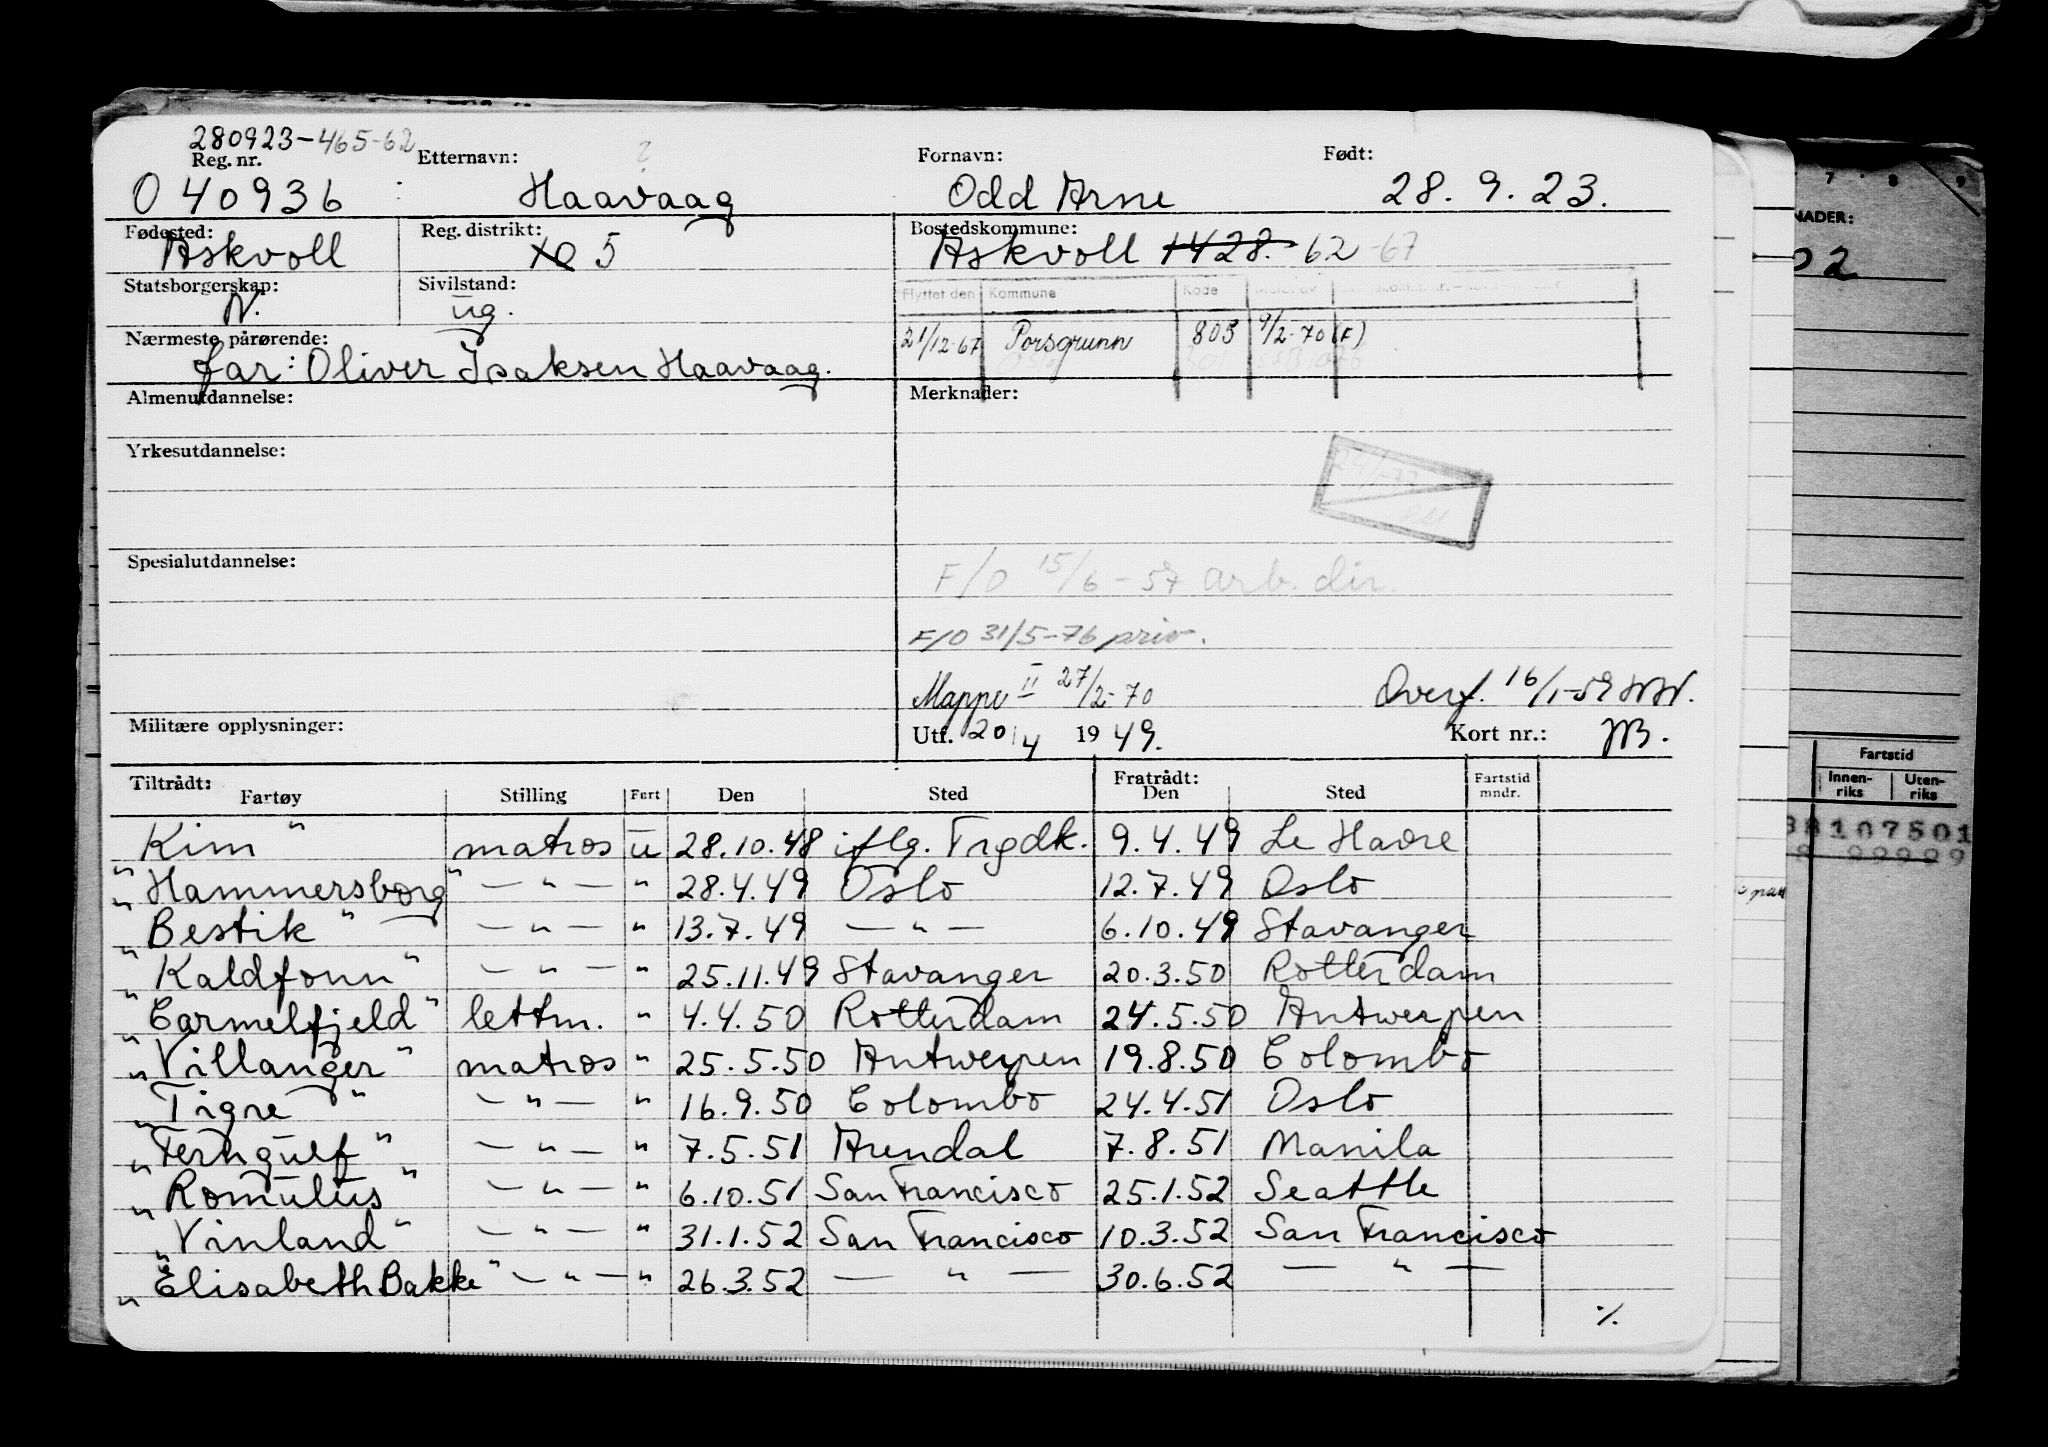 280923-465-62
Reg. nr. Etternavn: Fornavn: Født:
040936 Haavaag Odd Arne 28. 9. 23.
Fødested: Reg. distrikt: Bostedskommune:
Askvoll 5 Askvoll 1428. 62-67
Statsborgerskap: Sivilstand:
N. ug.
Flyttet den Kommune Kode
Nærmeste pårørende:
21/12-67 Porsgrunn 805 9/2-70 (F)
far: Oliver Isaksen Haavaag.
Almenutdannelse: Merknader:
Yrkesutdannelse:
Spesialutdannelse:
F/O 15/6-57 arb. dir.
F/O 31/5-76 priv.
Mappe II 27/2-70 Overf. 16/1-59
Militære opplysninger: Utf. 20/4 1949. Kort nr.:
Tiltrådt: Fratrådt: Fartstid
Fartøy Stilling Fart Den Sted Den Sted mndr.
"Kim" matros u 28.10.48 iflg. Trgdk. 9.4.49 Le Havre
"Hammersborg" — " — " 28.4.49 Oslo 12.7.49 Oslo
"Bestik" — " — " 13.7.49 — " — 6.10.49 Stavanger
"Kaldfonn" — " — " 25.11.49 Stavanger 20.3.50 Rotterdam
"Carmelfjeld" lettm. " 4.4.50 Rotterdam 24.5.50 Antwerpen
"Villanger" matros " 25.5.50 Antwerpen 19.8.50 Colombo
"Tigre" — " — " 16.9.50 Colombo 24.4.51 Oslo
"Ferngulf" — " — " 7.5.51 Arendal 7.8.51 Manila
"Romulus" — " — " 6.10.51 San Francisco 25.1.52 Seattle
"Vinland" — " — " 31.1.52 San Francisco 10.3.52 San Francisco
"Elisabeth Bakke" — " — " 26.3.52 — " — 30.6.52 — " —
%
7 · 8 9
NADER:
02
Fartstid
Innen-riks Uten-riks
8107501
99999